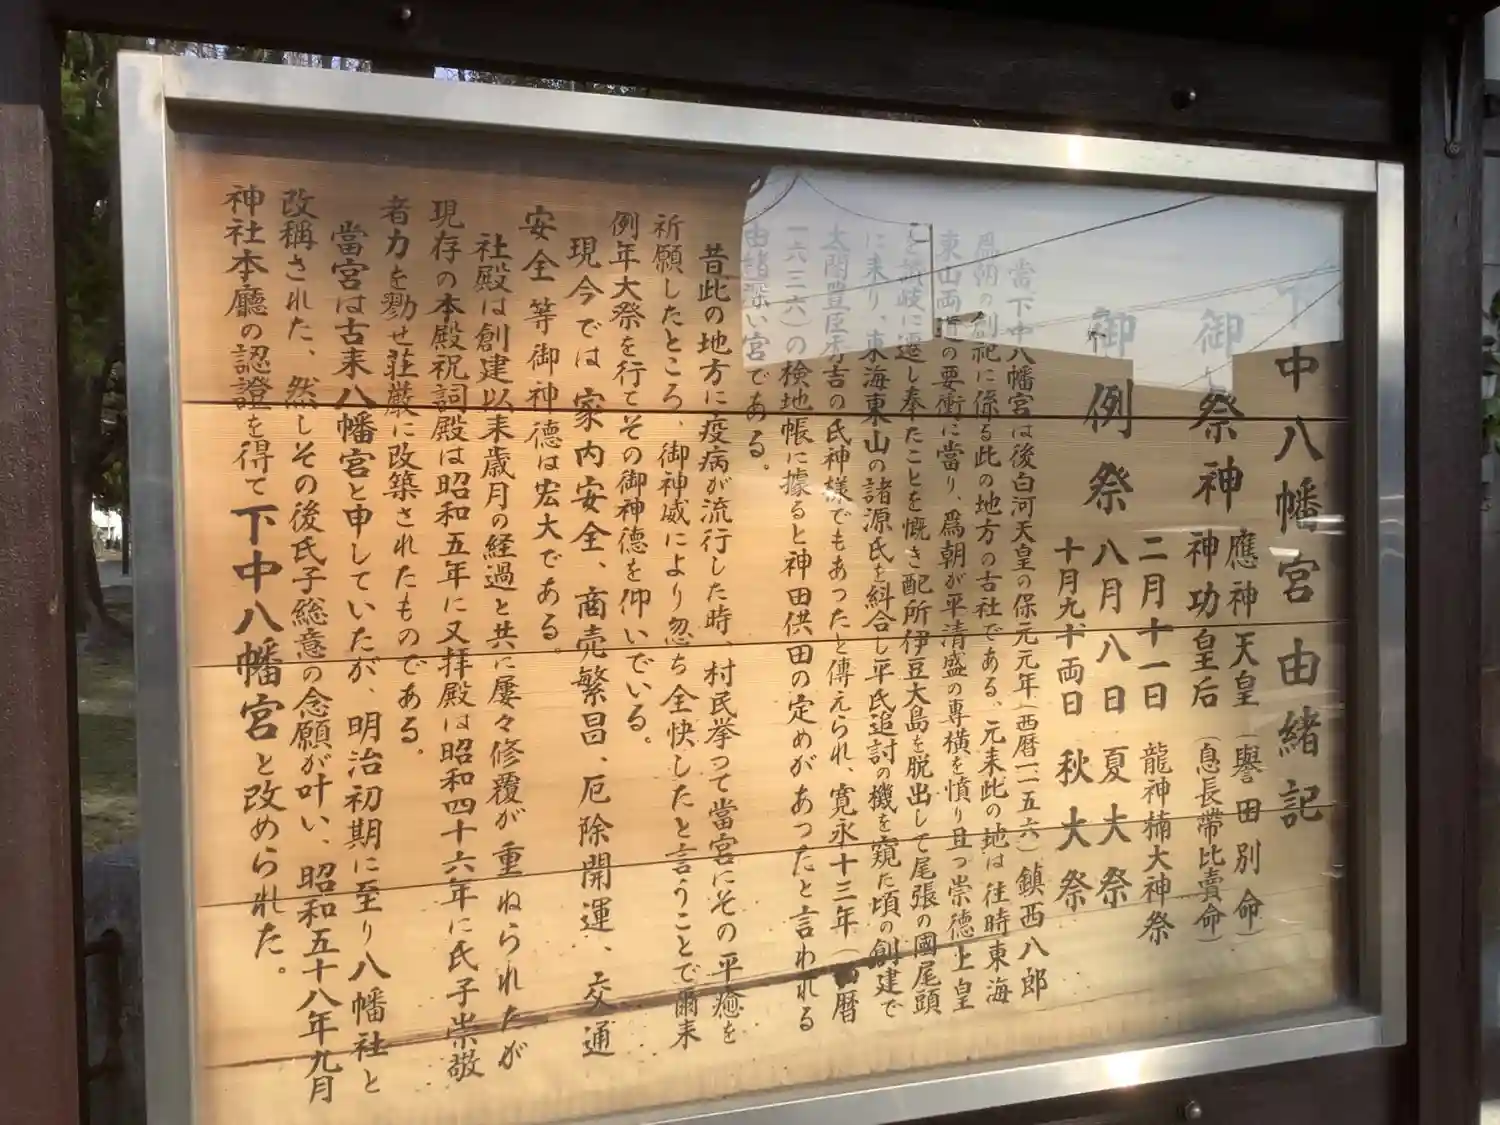 下中八幡宮由緒記
御祭神 應神天皇(譽田別命)
神功皇后(息長帶比賣命)
御例祭 二月十一日 龍神楠大神祭
八月八日 夏大祭
十月九、十両日 秋大祭
當下中八幡宮は後白河天皇の保元元年(西暦一一五六)鎮西八郎
爲朝の創祀に係る此の地方の古社である、元来此の地は往時東海
東山両道の要衝に當り、爲朝が平清盛の専横を憤り且つ崇德上皇
を讃岐に遷し奉たことを慨き配所伊豆大島を脱出して尾張の國尾頭
に来り、東海東山の諸源氏を糾合し平氏追討の機を窺た頃の創建で
太閤豊臣秀吉の氏神様でもあったと傳えられ、寛永十三年(西暦
一六三六)の検地帳に據ると神田供田の定めがあったと言われる
由緒深い宮である。
昔此の地方に疫病が流行した時、村民挙って當宮にその平癒を
祈願したところ、御神威により忽ち全快したと言うことで爾来
例年大祭を行てその御神德を仰いでいる。
現今では家内安全、商売繁昌、厄除開運、交通
安全等御神德は宏大である。
社殿は創建以来歳月の経過と共に屢々修覆が重ねられたが
現存の本殿祝詞殿は昭和五年に又拝殿は昭和四十六年に氏子崇敬
者力を勠せ荘厳に改築されたものである。
當宮は古来八幡宮と申していたが、明治初期に至り八幡社と
改稱された、然しその後氏子総意の念願が叶い、昭和五十八年九月
神社本廳の認證を得て下中八幡宮と改められた。